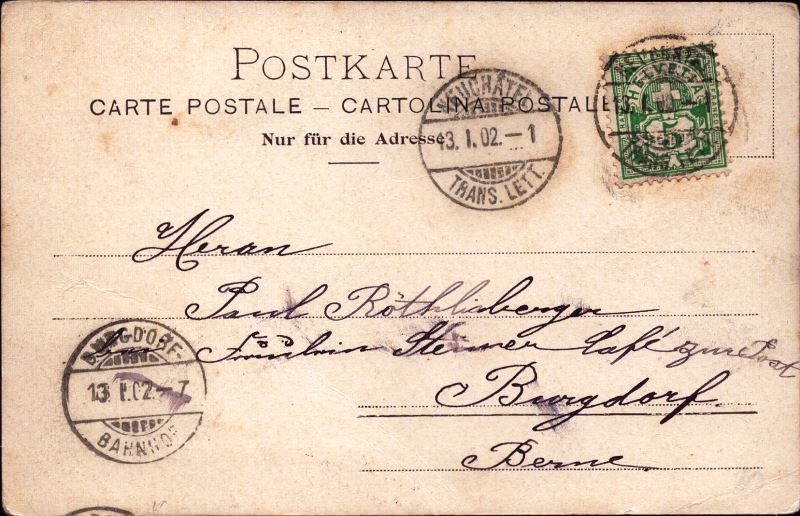 POSTKARTE
CARTE POSTALE – CARTOLINA POSTALE
Nur für die Adresse
NEUCHATEL
13. I. 02. – 1
TRANS. LETT.
HELVETIA
Heran
Paul Röthlisberger
Fräulein Steiner Café zur Post
Burgdorf
Berne
BURGDORF
13. I. 02. – 7
BAHNHOF